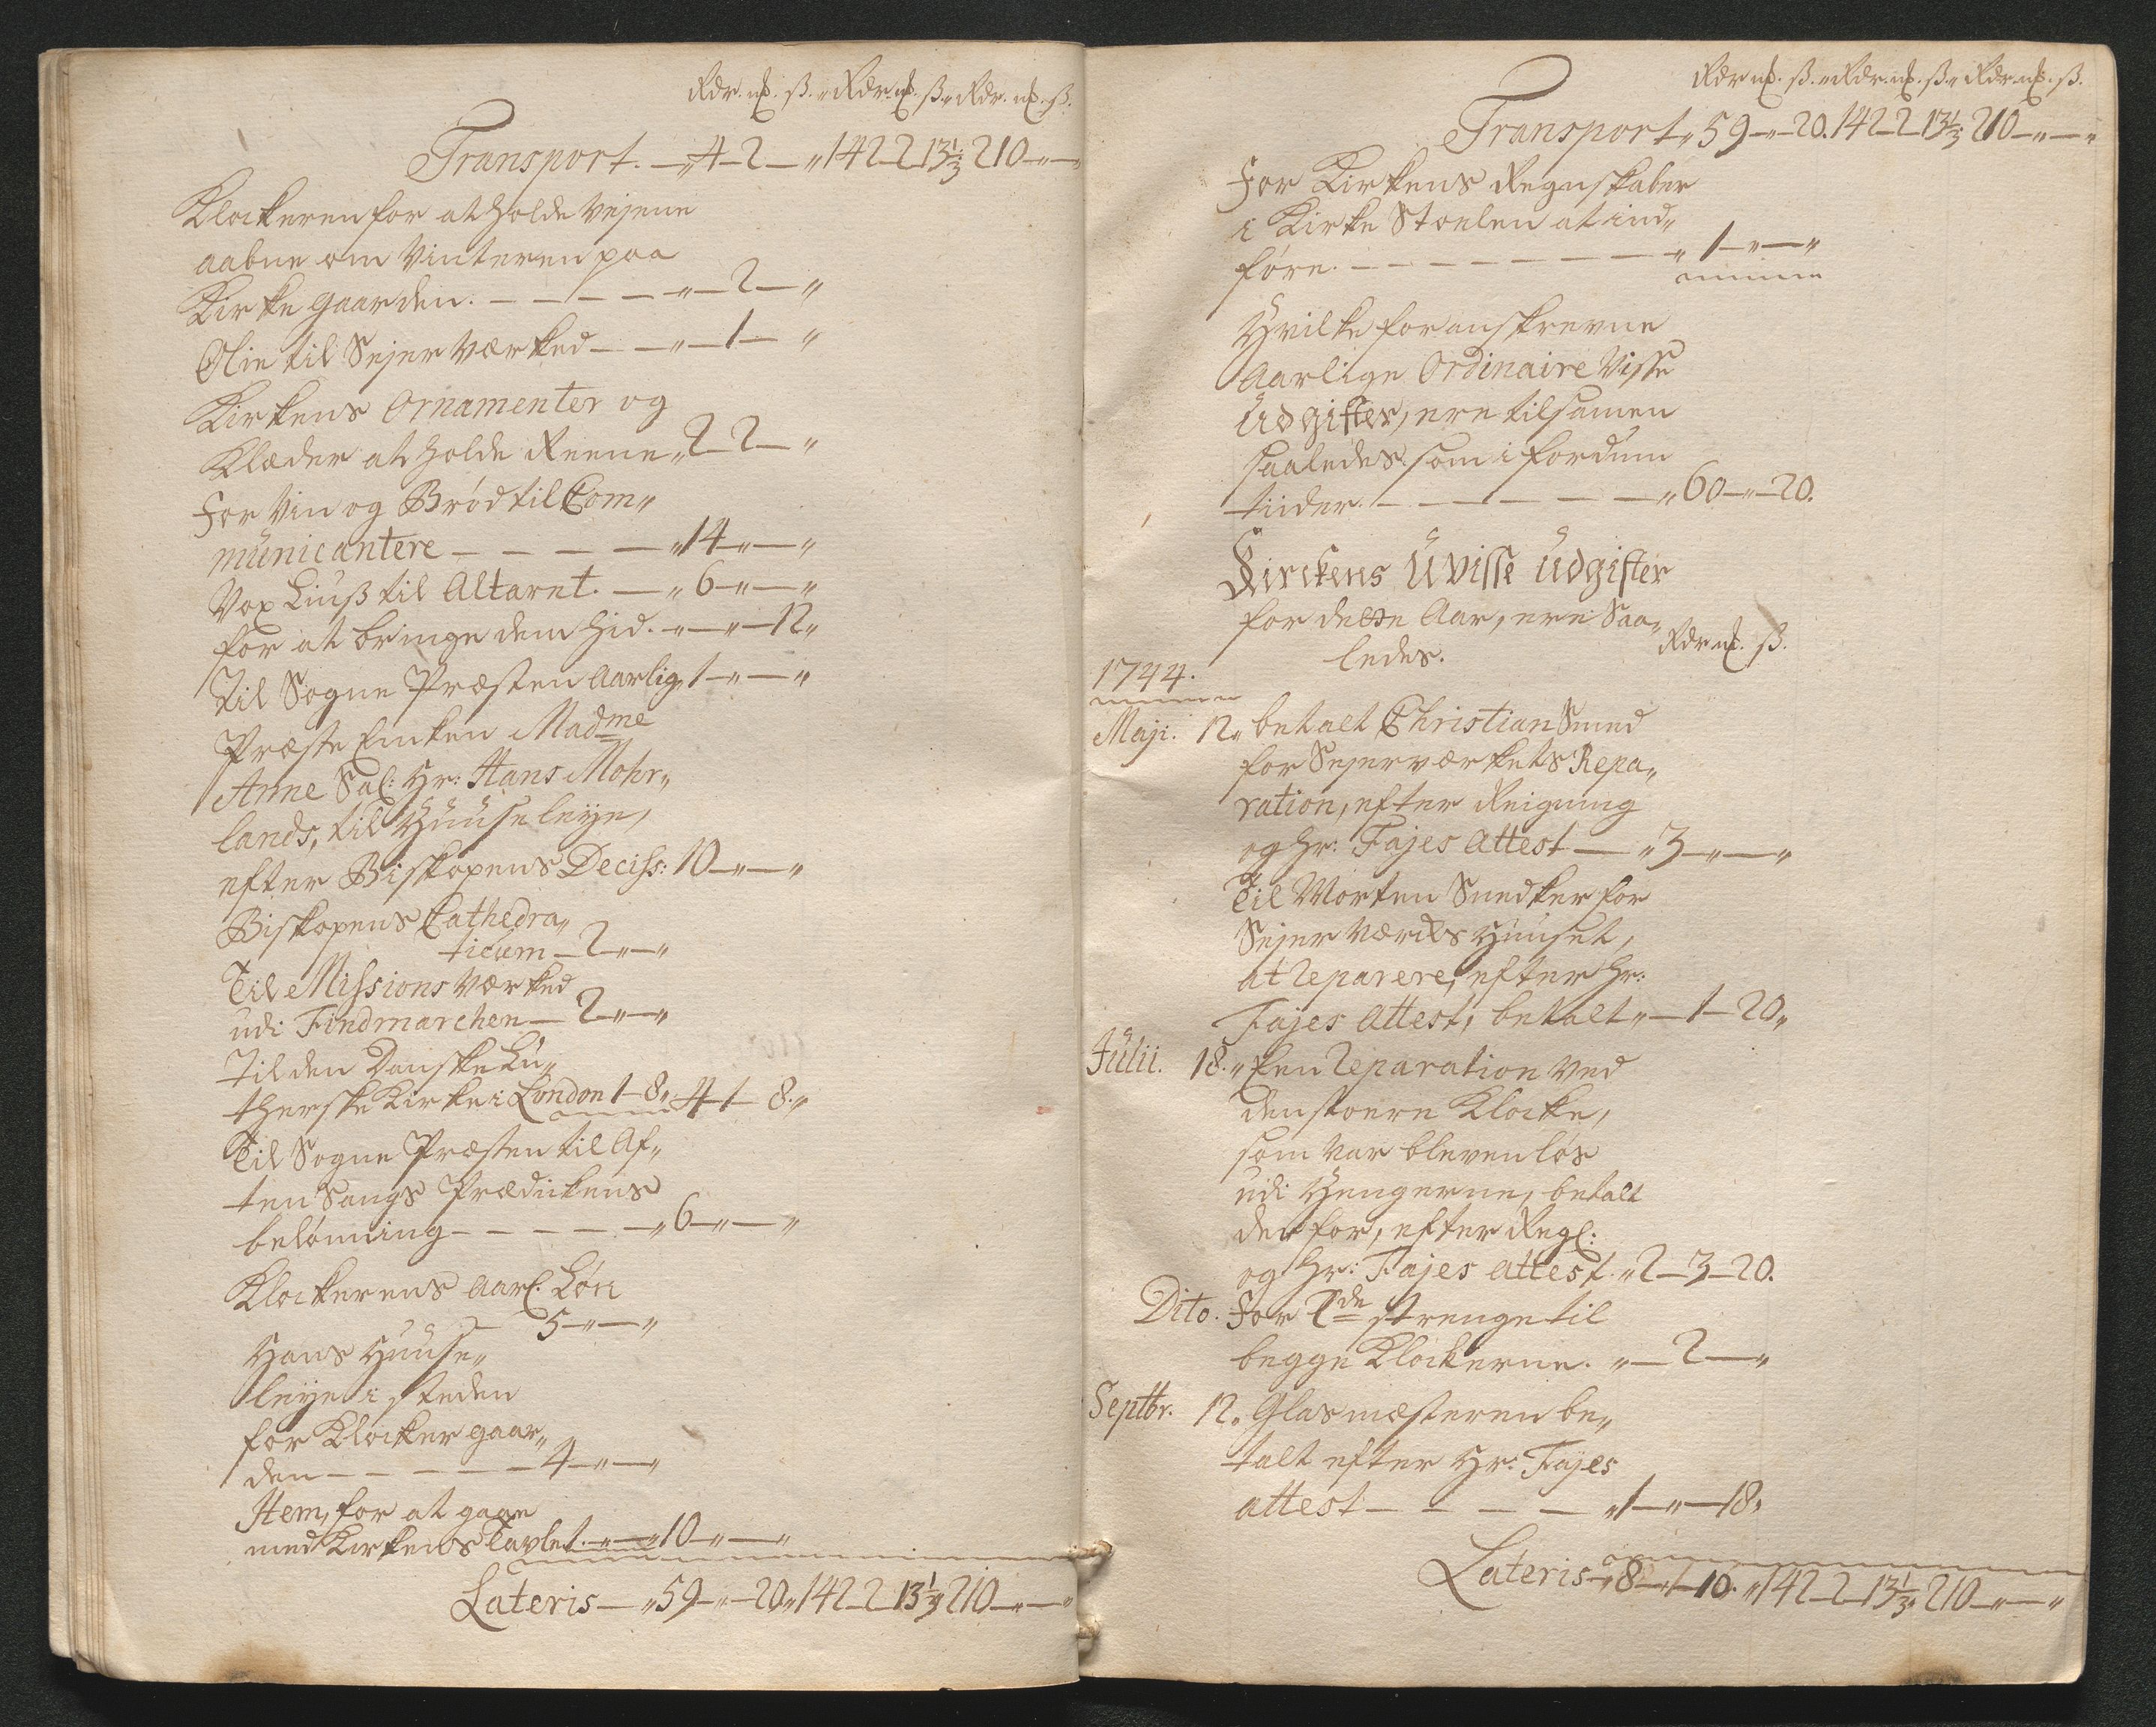 Rdr. mk. ß. „ Rdr. mk. ß. „ Rdr. mk. ß.
Transport. — „ 4 — 2 — „ 142 — 2 — 13⅓ 210 — „ — „
Klockeren for at holde Vejene
aabne om Vinteren paa
Kirke gaarden. — — — — „ — 2 — „
Olie til Sejer Værked — — „ — 1 — „
Kirkens Ornamenter og
Klæder at holde Reene „ 2 — 2 — „
For Viin og Brød til Com„
municantere — — — — „ 14 — „ — „
Vox Liuß til Altaret. — „ 6 — „ — „
for at bringe dem hid. — „ — „ — 12 „
Til Sogne Præsten Aarlig „ 1 — „ — „
Præste Enken Madme
Anne Sal: Hr: Hans Mohr„
lands, til Huuse leye,
efter Biskopens Deciss: 10 — „ — „
Biskopens Cathedra„
ticum — 2 — „ — „
Til Missions Værked
udi Findmarchen — 2 — „ — „
Til den Danske Lu„
therske Kirke i London 1 — 8 „ 4 — 1 — 8. „
Til Sogne Præsten til Af„
ten Sangs Prædickens
belønning — — — — — „ 6 — „ — „
Klockerens Aarl. Løn
— 5 — „ — „
Hans Huuse„
leye i steden
for Klocker gaar„
den — — — — — 4 — „ — „
Item, for at gaae
med Kirkens Tavlet. — „ — „ 10 — „ — „
Lateris — „ 59 — „ — 20 „ 142 — 2 13⅓ 210 — „ — „
Rdr mk. ß. „ Rdr. mk. ß. „ Rdr. mk. ß.
Transport „ 59 — „ — 20. 142 — 2 — 13⅓ 210 — „ — „
For Kirkens Regnskaber
i Kirke Stoelen at ind„
føre. — — — — — — — „ 1 — „ — „
Hvilke foranskrevne
Aarlige Ordinaire Visse
Udgifter, ere tilsamen
saaledes som i fordum
tiider. — — — — — — „ 60 — „ — 20.
Kirckens Uvisse Udgifter
for dette Aar, ere Saa„
ledes.
Rdr mk. ß.
1744.
Maji. 12. betalt Christian Smed
for Sejerværkets Repa„
ration, efter Reigning
og Hr: Fajes Attest — „ 3 — „ — „
Til Morten Snedker for
Sejer Værcks Huuset,
at reparere, efter Hr:
Fajes Attest, betalt „ — 1 — 20 „
Julii. 18. „ Een Reparation ved
den stoere Klocke,
som var bleven løs
udi Hengerne, betalt
derfor, efter Regl:
og Hr: Fajes attest. „ 2 — 3 — 20.
Dito. For 2de strenge til
begge Klockerne. „ — 2 — „
Septbr. 12. Glasmæsteren be„
talt efter Hr: Fajes
attest — — — — „ 1 — „ — 18 „
Lateris — „ 8 — 1 — 10. „ 142 — 2 — 13⅓ „ 210 — „ — „